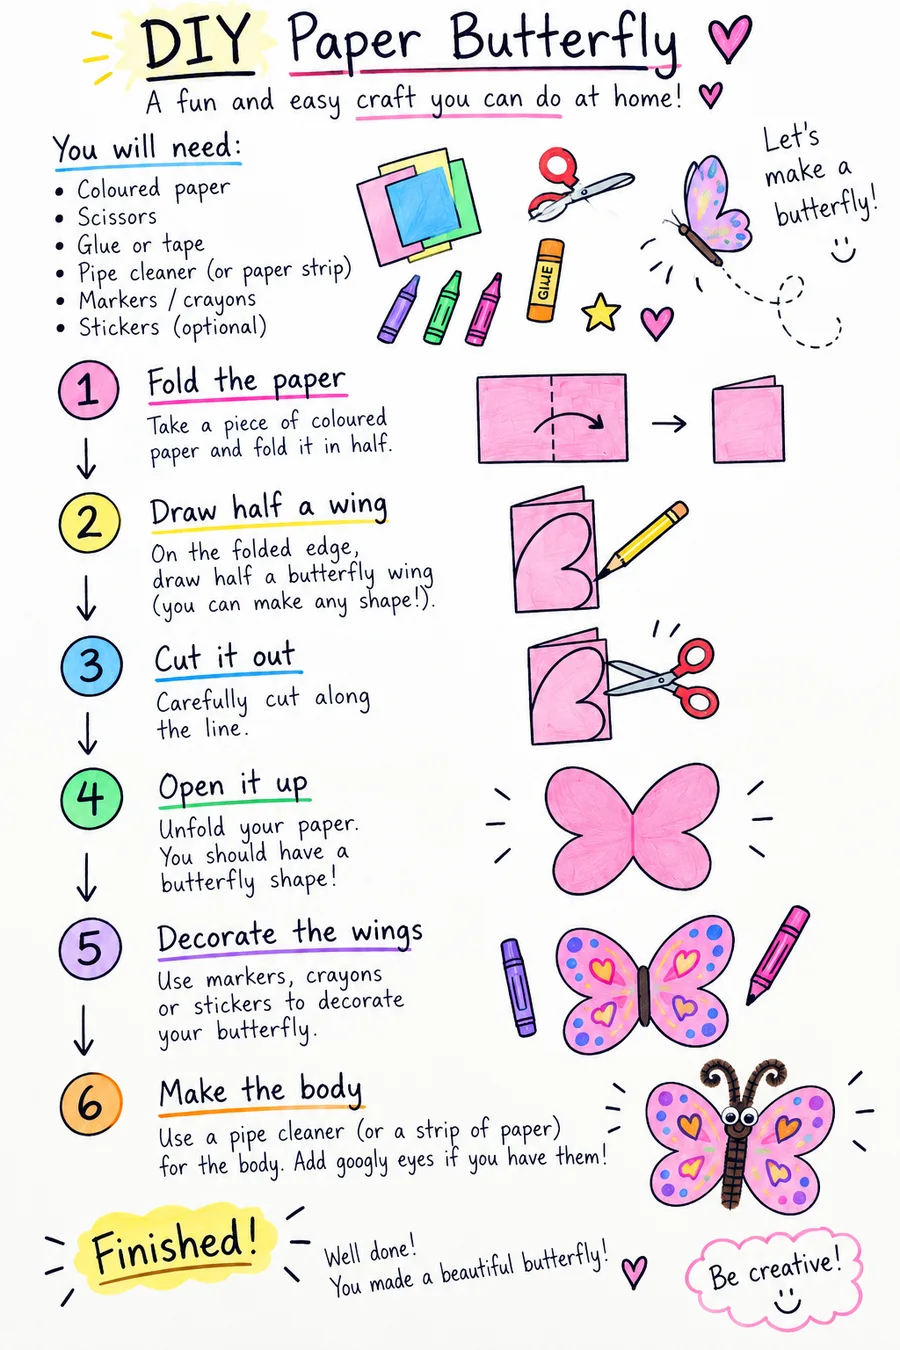 DIY Paper Butterfly
A fun and easy craft you can do at home!
You will need:
• Coloured paper
• Scissors
• Glue or tape
• Pipe cleaner (or paper strip)
• Markers / crayons
• Stickers (optional)
GLUE
Let's
make a
butterfly!
1
Fold the paper
Take a piece of coloured
paper and fold it in half.
2
Draw half a wing
On the folded edge,
draw half a butterfly wing
(you can make any shape!).
3
Cut it out
Carefully cut along
the line.
4
Open it up
Unfold your paper.
You should have a
butterfly shape!
5
Decorate the wings
Use markers, crayons
or stickers to decorate
your butterfly.
6
Make the body
Use a pipe cleaner (or a strip of paper)
for the body. Add googly eyes if you have them!
Finished!
Well done!
You made a beautiful butterfly!
Be creative!